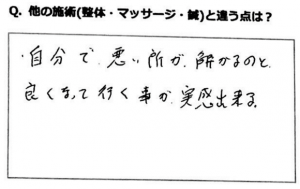 Q. 他の施術(整体・マッサージ・鍼)と違う点は？
・自分で悪い所が解かるのと
良くなって行く事が実感出来る